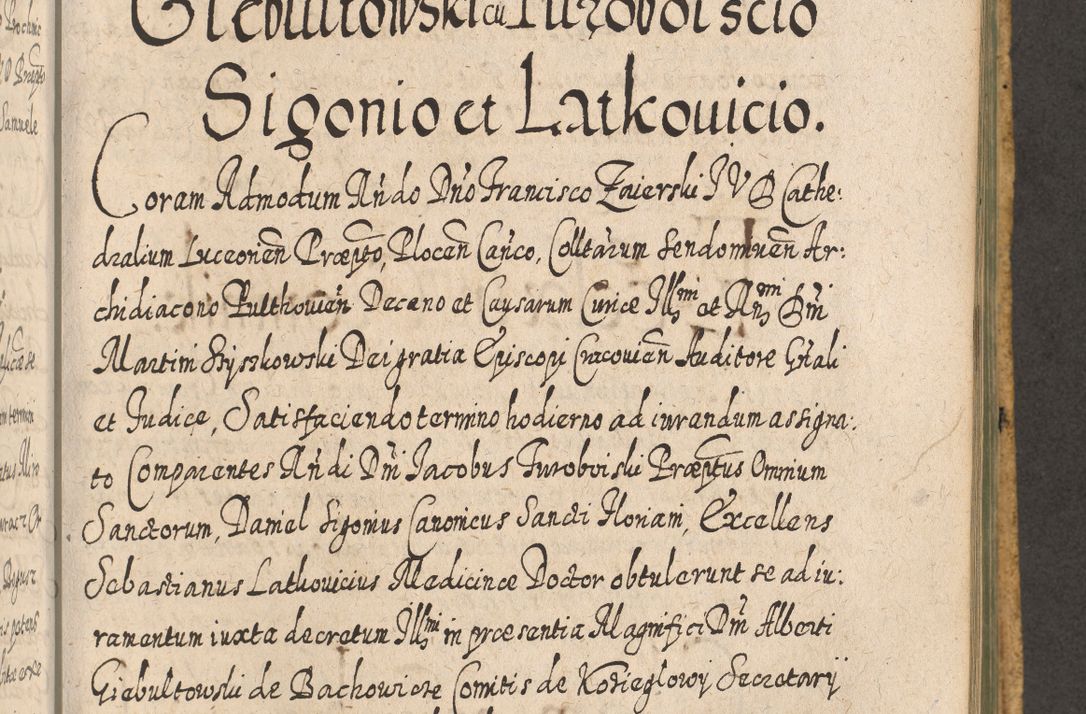 Giebultowski cu Turoboiscio
Sigonio et Latkouicio.
Coram Admodum Rńdo Dńo Francisco Zaierski I V D Cathe:
dralium Luceorień Præpto, Ploceń Cańco, Colltarum Sendomirień Ar:
chidiacono Pulthouień Decano et Causarum Curiæ Illmi et Rmi Dńi
Martini Szyszkowski Dei gratia Episcopi Cracouień Auditore Gńali
et Iudice, Satisfaciendo termino hodierno ad iurandum assigna:
to Comparentes Rńdi Dńi Iacobus Turoboiski Præptus Omnium
Sanctorum, Daniel Sigonius Canonicus Sancti Floriani, Excellens
Sebastianus Latkouicius Medicinæ Doctor obtulerunt se ad iu:
ramentum iuxta decretum Illmi in præsentia Magnifici Dńi Alberti
Giebultowski de Bachowicze Comitis de Kozieglowÿ Secretarÿ